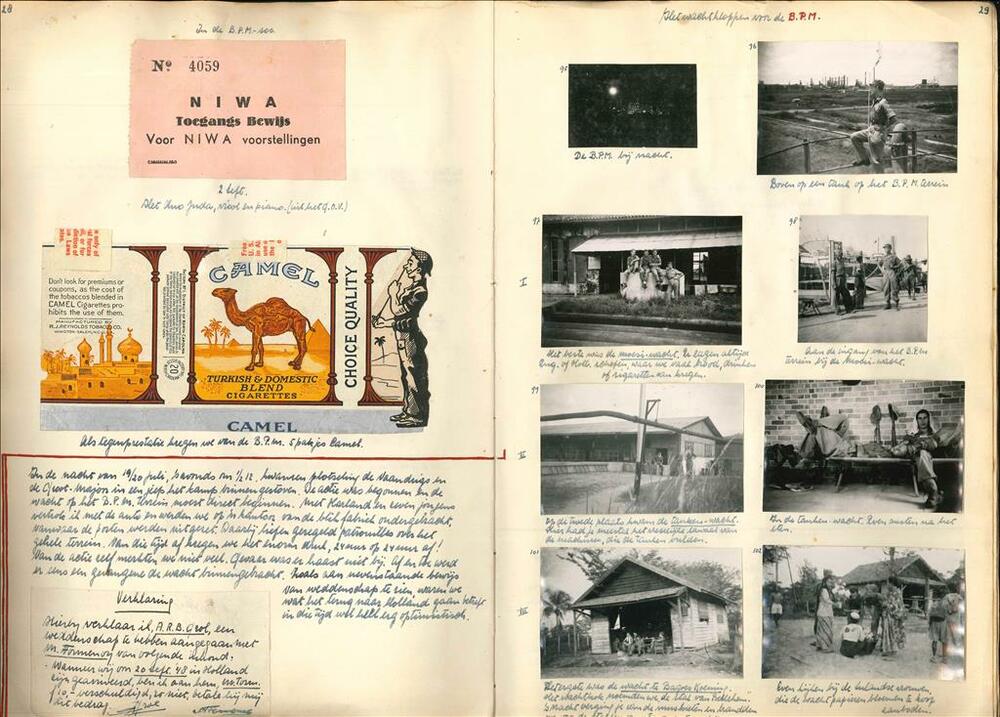 28
In de B.P.M.-soc.
Nº 4059
NIWA
Toegangs Bewijs
Voor NIWA voorstellingen
2 Sept.
Met duo Juda, viool en piano. (uit het G.O.V.)
Don't look for premiums or
coupons, as the cost of
the tobaccos blended in
CAMEL Cigarettes pro-
hibits the use of them.
MANUFACTURED BY
R.J. REYNOLDS TOBACCO CO.
WINSTON-SALEM, N.C.
20
CAMEL
TURKISH & DOMESTIC
BLEND
CIGARETTES
CHOICE QUALITY
CAMEL
Als tegenprestatie kregen we van de B.P.M. 5 pakjes Camel.
In de nacht van 19/20 juli, 's avonds om ½ 12, kwamen plotseling de Vaandrig en
de Sgt.-Majoor in een jeep het kamp binnengestoven. De actie was begonnen en de
wacht op het B.P.M. terrein moest direct beginnen. Met Karland en zeven jongens
vertrok ik met de auto en werden we op 't kantoor van de blik fabriek ondergebracht,
vanwaar de posten werden uitgezet. Daarbij liepen geregeld patrouilles over het
gehele terrein. Van die tijd af kregen we het enorm druk, 24 uur op 24 uur af!
Van de actie zelf merkten we niet veel. Gevaar was er haast niet bij. Af en toe werd
er eens een gevangene de wacht binnengebracht. Zoals aan nevenstaande bewijs
van weddenschap te zien, waren we
wat het terug naar Holland gaan betreft
in die tijd wel heel erg optimistisch.
Verklaring
Hierbij verklaar ik, A.R.B. Grol, een
weddenschap te hebben aangegaan met
M. Formenoy van volgende inhoud:
Wanneer wij vóór 20 Sept. 48 in Holland
zijn gearriveerd, ben ik aan hem, M. Form.
ƒ 10,- verschuldigd, zo niet, betale hij mij
dit bedrag.
29
Het wachtkloppen voor de B.P.M.
95
De B.P.M. bij nacht.
96
Boven op een tank op het B.P.M. terrein
97
I
Het beste was de Moesi-wacht. Er lagen altijd
Eng. of Holl. schepen, waar we vaak brood, drinken
of sigaretten van kregen.
98
Aan de ingang van het B.P.M.
terrein bij de Moesi-wacht.
99
II
Op de tweede plaats kwam de tanken-wacht.
Hier had je meestal het vreselijke lawaai van
de machines, die de tanken vulden.
100
In de tanken-wacht. Even rusten na het
eten.
101
III
Het ergste was de wacht te Bagoes Koening.
102
Even kijken bij de inlandse vrouwen,
die de wacht papieren bloemen te koop
aanboden.